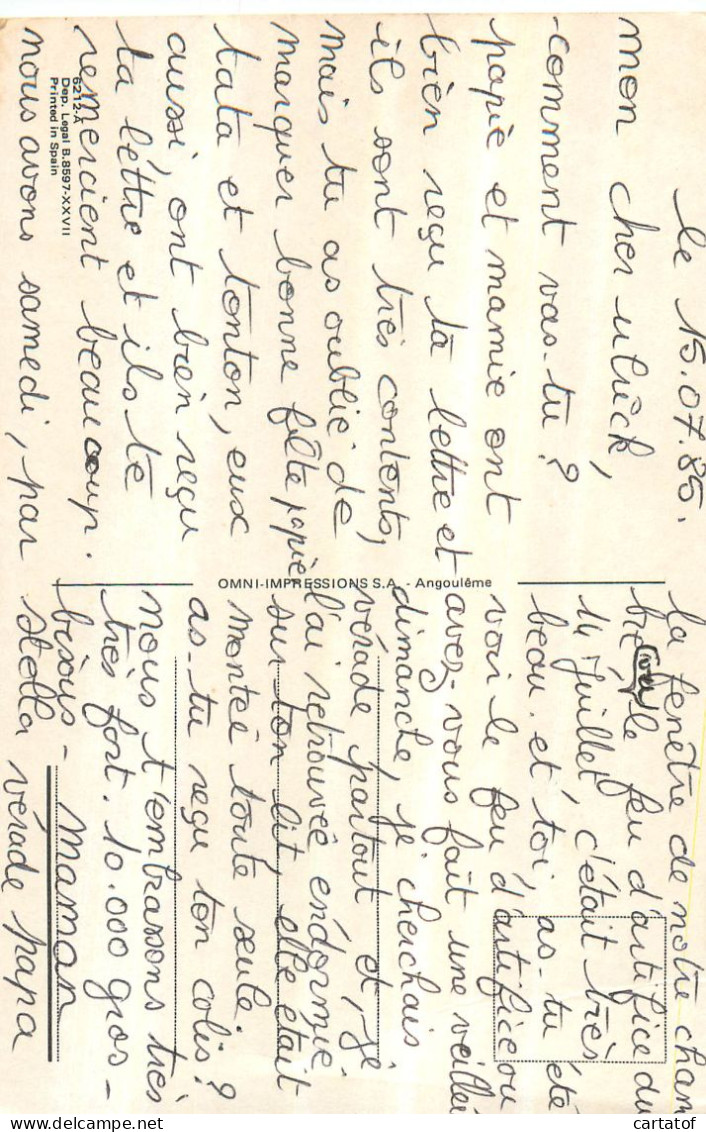 le 15.07.85.
mon cher ulrick,
comment vas-tu?
papie et mamie ont
bien reçu ta lettre et
ils sont très contents,
mais tu as oublié de
marquer bonne fête papie
tata et tonton, eux
aussi, ont bien reçu
ta léttre et ils te
remercient beaucoup.
nous avons samedi, par
la fenêtre de notre cham
bre (vu) le feu d'artifice du
14 Juillet, c'était très
beau. et toi, as-tu été
voir le feu d'artifice ou
avez-vous fait une veillée
dimanche, je cherchais
vérade partout et, je
l'ai retrouvée endormie
sur ton lit, elle était
montée toute seule.
as-tu reçu ton colis?
nous t'embrassons très
très fort. 10.000 gros-
bisous - maman
stella vérade papa
6212-A
Dep. Legal B.8597-XXVII
Printed in Spain
OMNI-IMPRESSIONS S.A. - Angoulême
cartatof